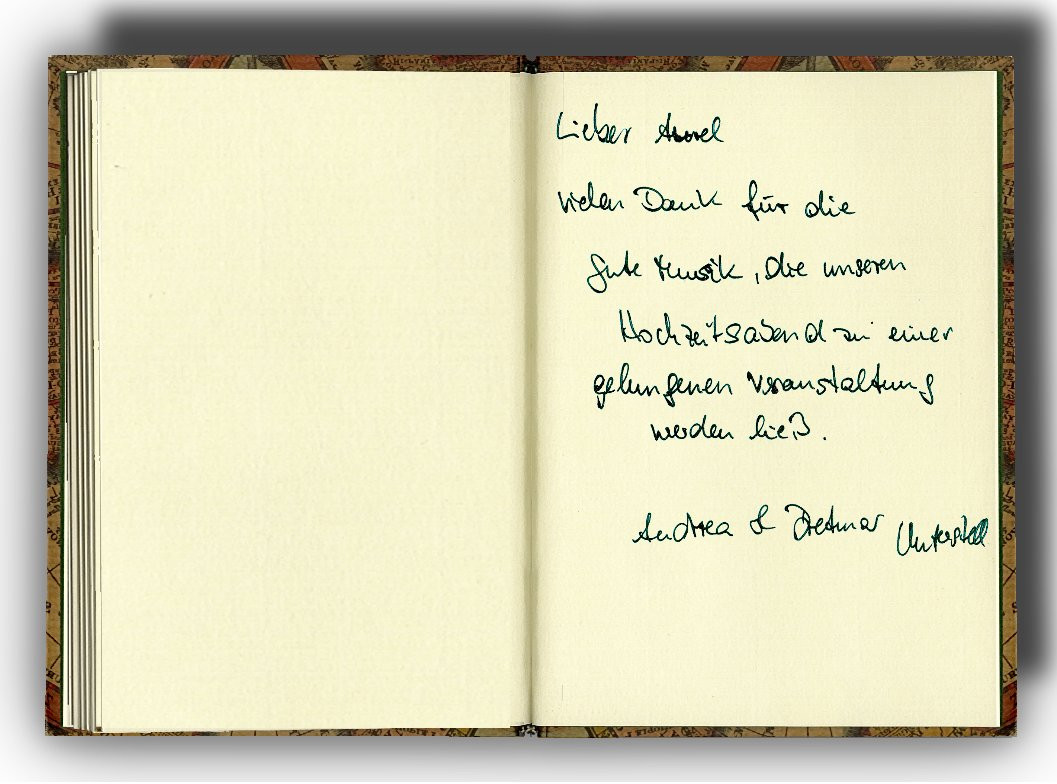 Lieber Aurel
vielen Dank für die
gute Musik, die unseren
Hochzeitsabend zu einer
gelungenen Veranstaltung
werden ließ.
Andrea & Dietmar